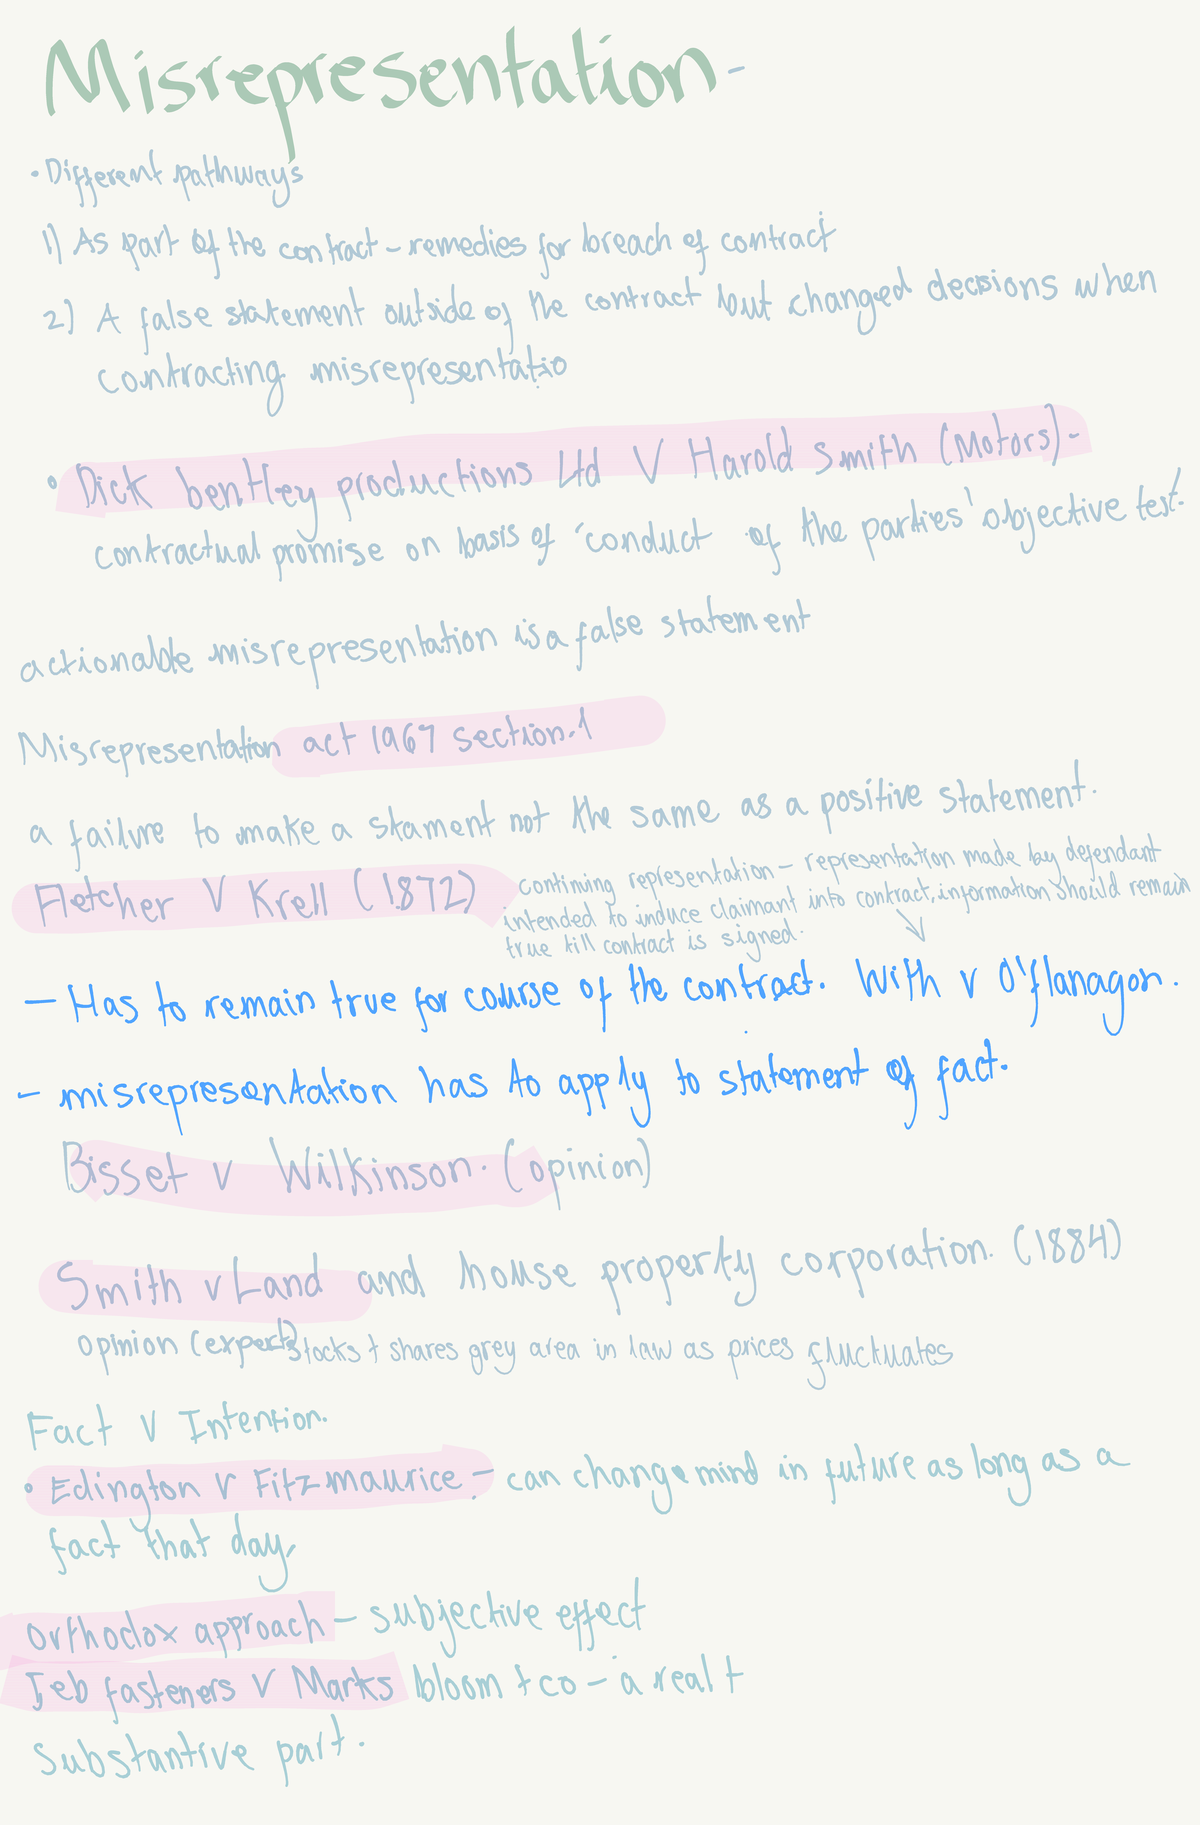 Misrepresentation -
• Different pathways
1) As part of the contract - remedies for breach of contract
2) A false statement outside of the contract but changed decisions when
contracting misrepresentatio
• Dick bentley productions Ltd V Harold Smith (Motors) -
contractual promise on basis of 'conduct of the parties' objective test.
actionable misrepresentation is a false statement
Misrepresentation act 1967 section.1
a failure to make a stament not the same as a positive statement.
Fletcher V Krell (1872)
continuing representation - representation made by defendant
intended to induce claimant into contract, information should remain
true till contract is signed.
- Has to remain true for course of the contract. With v O'flanagon.
- misrepresentation has to apply to statement of fact.
Bisset v Wilkinson. (opinion)
Smith v Land and house property corporation. (1884)
opinion (expert) stocks + shares grey area in law as prices fluctuates
Fact V Intention.
• Edington V Fitzmaurice - can change mind in future as long as a
fact that day,
Orthodox approach - subjective effect
Jeb fasteners V Marks bloom + co - a real +
substantive part.